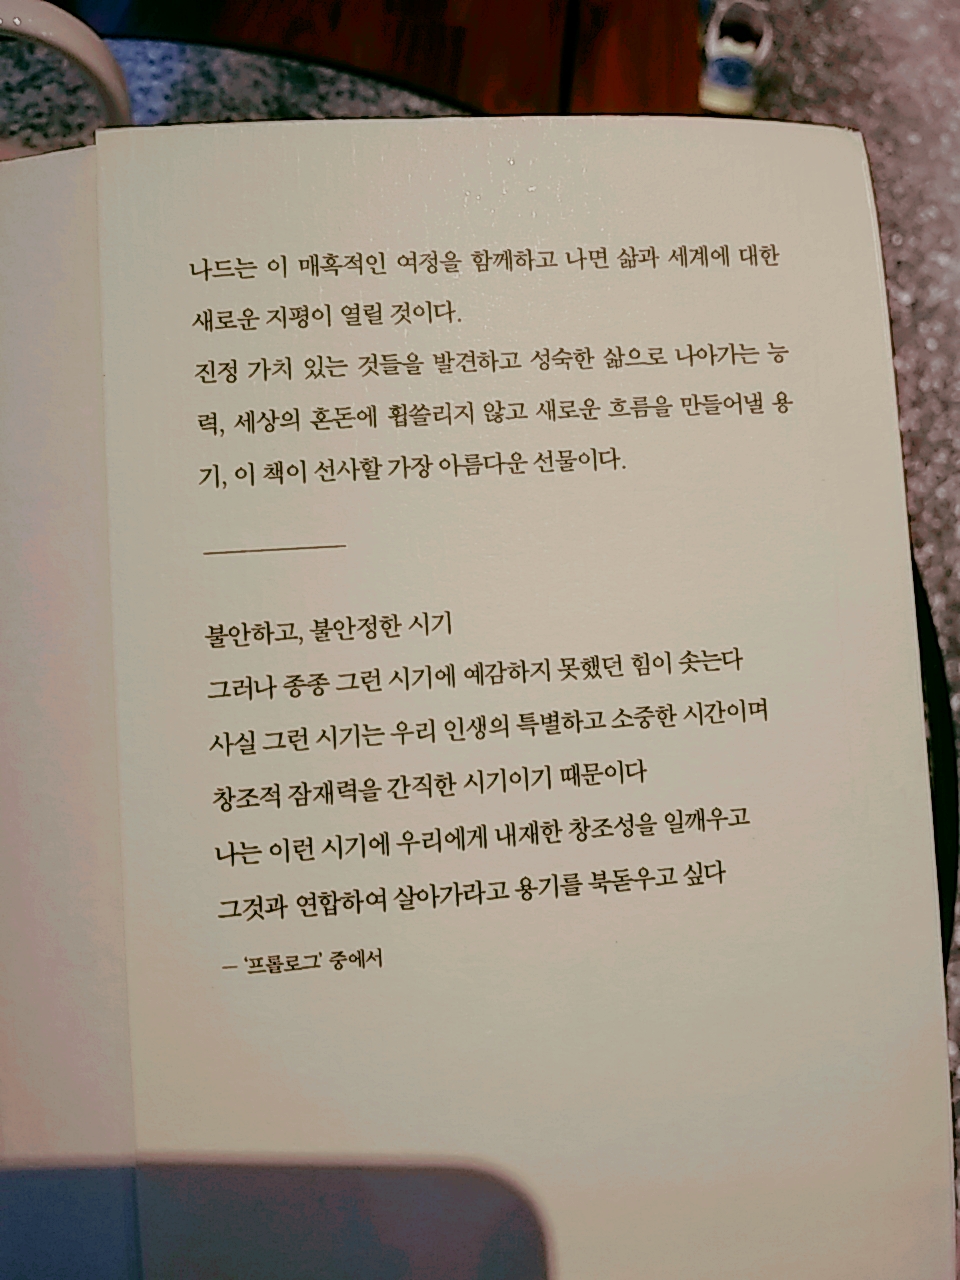 나드는 이 매혹적인 여정을 함께하고 나면 삶과 세계에 대한
새로운 지평이 열릴 것이다.
진정 가치 있는 것들을 발견하고 성숙한 삶으로 나아가는 능
력, 세상의 혼돈에 휩쓸리지 않고 새로운 흐름을 만들어낼 용
기, 이 책이 선사할 가장 아름다운 선물이다.
불안하고, 불안정한 시기
그러나 종종 그런 시기에 예감하지 못했던 힘이 솟는다
사실 그런 시기는 우리 인생의 특별하고 소중한 시간이며
창조적 잠재력을 간직한 시기이기 때문이다
나는 이런 시기에 우리에게 내재한 창조성을 일깨우고
그것과 연합하여 살아가라고 용기를 북돋우고 싶다
– ‘프롤로그’ 중에서